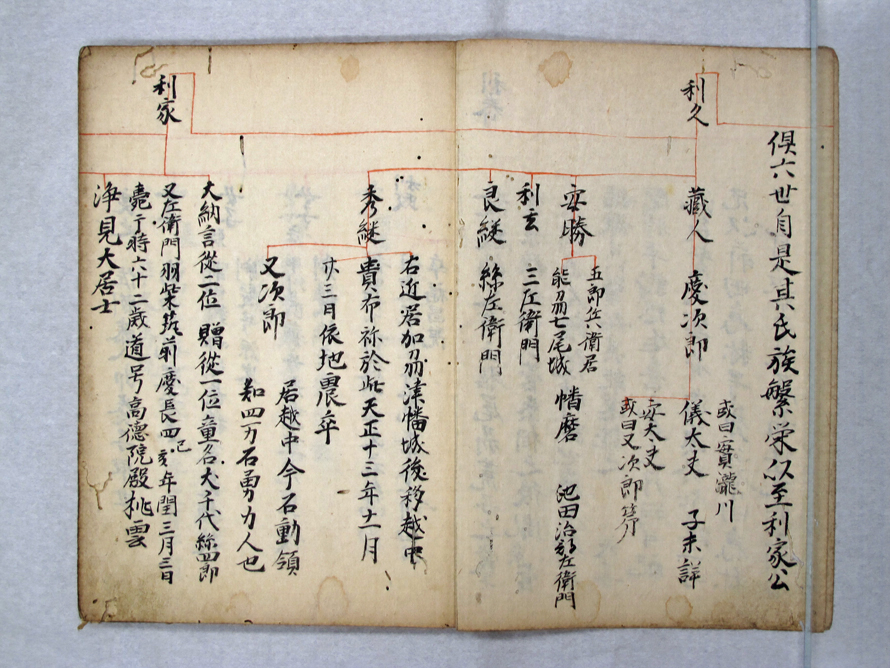 倶六世自是其氏族繁栄以至利家公
利久
蔵人 慶次郎
或曰實瀧川
儀太夫 子未詳
安太夫
或曰又次郎
安勝
五郎兵衛居
能刕七尾城 幡磨 池田治部左衛門
利玄 三左衛門
良継 絲左衛門
秀継
右近居加刕津幡城後移越中
貴布祢於此天正十三年十一月
廿三日依地震卒
又次郎
居越中今石動領
知四万石勇力人也
利家
大納言従二位 贈従一位童名犬千代絲四郎
又左衛門羽柴筑前慶長四己亥年閏三月三日
薨于時六十二歳道号高徳院殿桃雲
浄見大居士